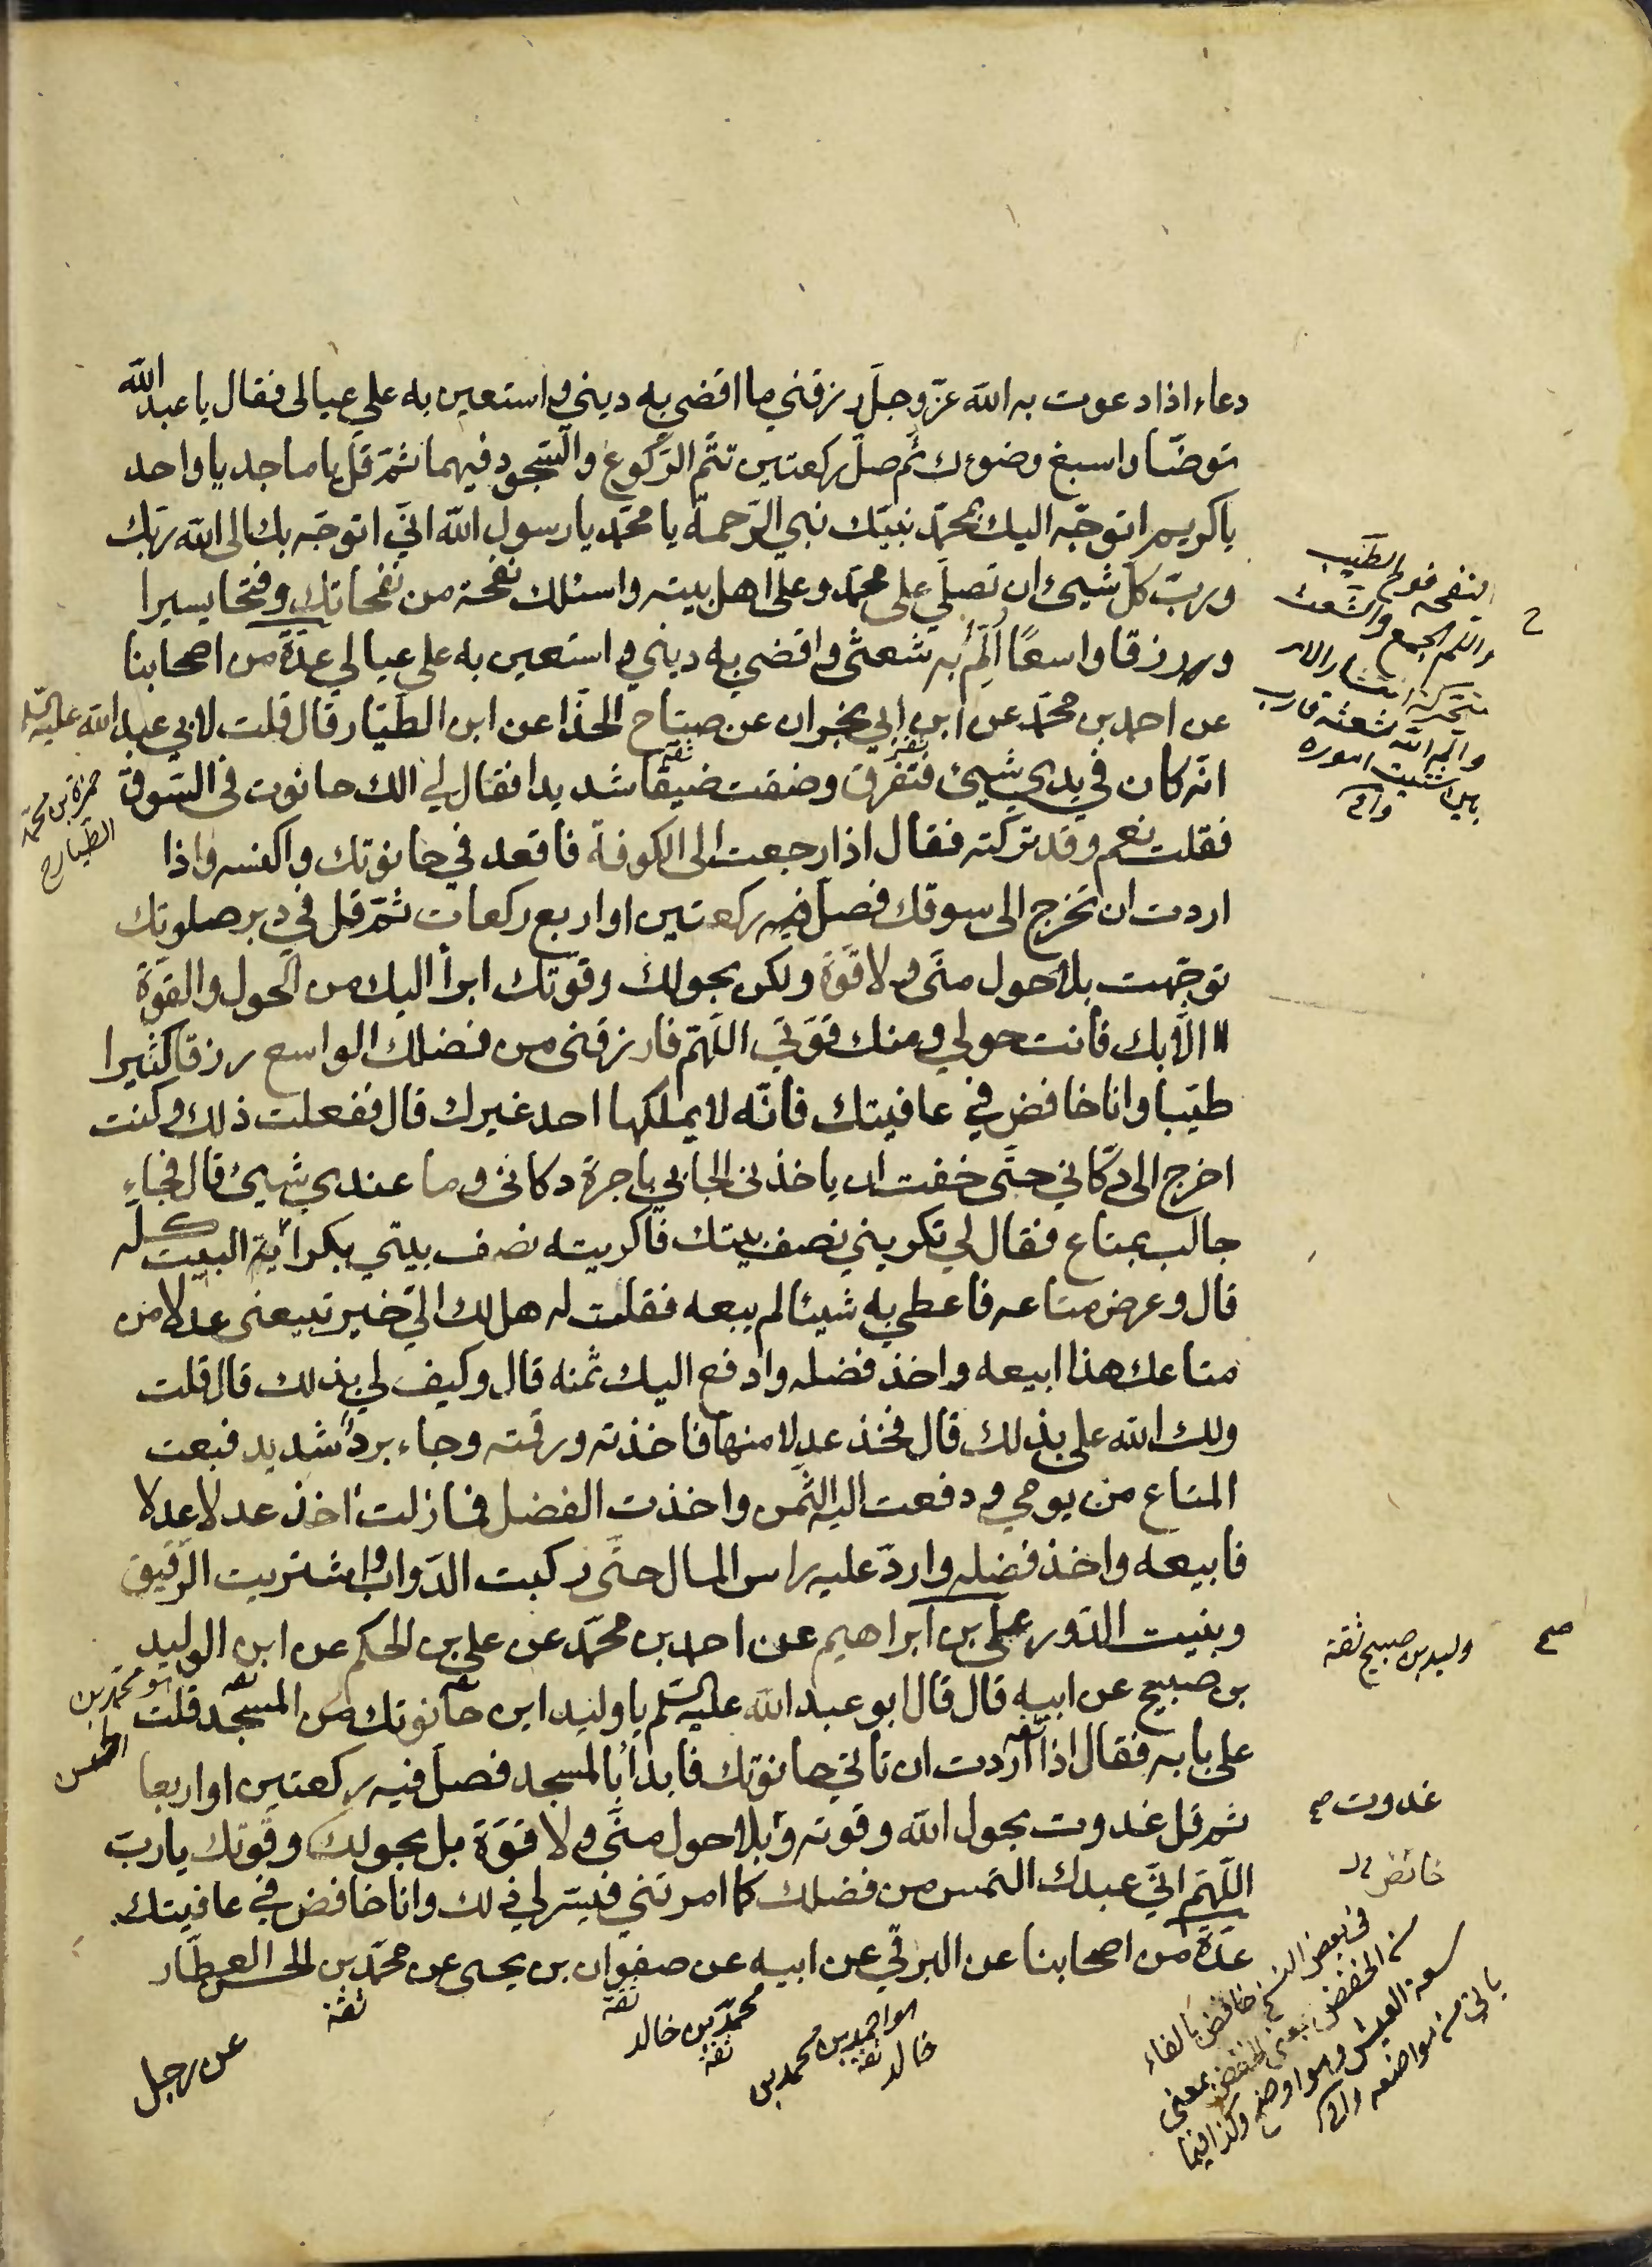 دعاء اذا دعوت به الله عزّ وجلّ رزقني ما اقضي به ديني واستعين به على عيالى فقال يا عبد الله
توضّأ واسبغ وضوءك ثم صلّ ركعتين تتمّ الركوع والسّجود فيهما ثمّ قل يا ماجد يا واحد
يا كريم اتوجّه اليك بمحمّد نبيّك نبي الرّحمة يا محمّد يا رسول الله انّي اتوجّه بك الى الله ربّك
وربّ كلّ شيئ ان تصلّي على محمّد وعلى اهل بيته واسئلك نفحة من نفحاتك وفتحا يسيرا
ورزقا واسعًا اَلُمّ به شعثى واقضي به ديني واستعين به على عيالي عدّة من اصحابنا
عن احمد بن محمّد عن ابن ابي نجران عن صباح الحذّا عن ابن الطّيّار قال قلت لابي عبد الله عليه السلم
ثقة
ثقة
انّه كان في يدي شيئ فتفرق وضقت ضيقا شديدا فقال لي الك حانوت في السّوق
فقلت نعم وقد تركته فقال اذا رجعت الى الكوفة فاقعد في حانوتك واكنسه واذا
اردت ان تخرج الى سوقك فصلّ ركعتين او اربع ركعات ثمّ قل في دبر صلوتك
توجّهت بلا حول منّي ولا قوّة ولكن بحولك وقوّتك ابرأ اليك من الحول والقوّة
الّا بك فانت حولي ومنك قوّتي اللّهمّ فارزقني من فضلك الواسع رزقا كثيرا
طيّبا وانا خافض في عافيتك فانّه لا يملكها احد غيرك قال ففعلت ذلك وكنت
اخرج الى دكّاني حتّى خفت ان ياخذني الجابي باجرة دكاني وما عندي شيئ قال فجاء
جالب بمتاع فقال لي تكريني نصف بيتك فاكريته نصف بيتي بكراية البيت كلّه
قال وعرض متاعه فاعطي به شيئا لم يبعه فقلت له هل لك اليّ خير تبيعني عدلا من
متاعك هذا ابيعه واخذ فضله وادفع اليك ثمنه قال وكيف لي بذلك قال قلت
ولك الله علي بذلك قال فخذ عدلا منها فاخذته ورقته وجاء برد شديد فبعت
المتاع من يومي ودفعت اليه الثّمن واخذت الفضل فما زلت اخذ عدلا عدلا
فابيعه واخذ فضله واردّ عليه راس المال حتّى ركبت الدّواب واشتريت الرّقيق
وبنيت الدّور علي بن ابراهيم عن احمد بن محمّد عن علي بن الحكم عن ابن الوليد
بن صبيح عن ابيه قال قال ابو عبد الله عليه السّلم يا وليد اين حانوتك من المسجد قلت
على بابه فقال اذا اردت ان تاتي حانوتك فابدا بالمسجد فصلّ فيه ركعتين او اربعا
ثم قل غدوت بحول الله وقوته وبلا حول منّي ولا قوّة بل بحولك وقوّتك يا ربّ
اللّهمّ انّي عبدك التمس من فضلك كما امرتني فيسّر لي ذلك وانا خافض في عافيتك
عدّة من اصحابنا عن البرقي عن ابيه عن صفوان بن يحيى عن محمّد بن الحسن العطّار
ثقة
ثقة
محمّد بن خالد
ثقة
هو احمد بن محمد بن
خالد ثقة
عن رجل
حمزة بن محمّد
الطّيار ح
النفحه فوح الطّيب
واللم الجمع والشّعث
بتحركه انتشار الامر
والم الله شعثه قارب
بين شتيت اموره
وليد بن صبيح ثقة
صح
هو محمّد بن
غدوت صح
في بعض النسخ خافض بالفاء